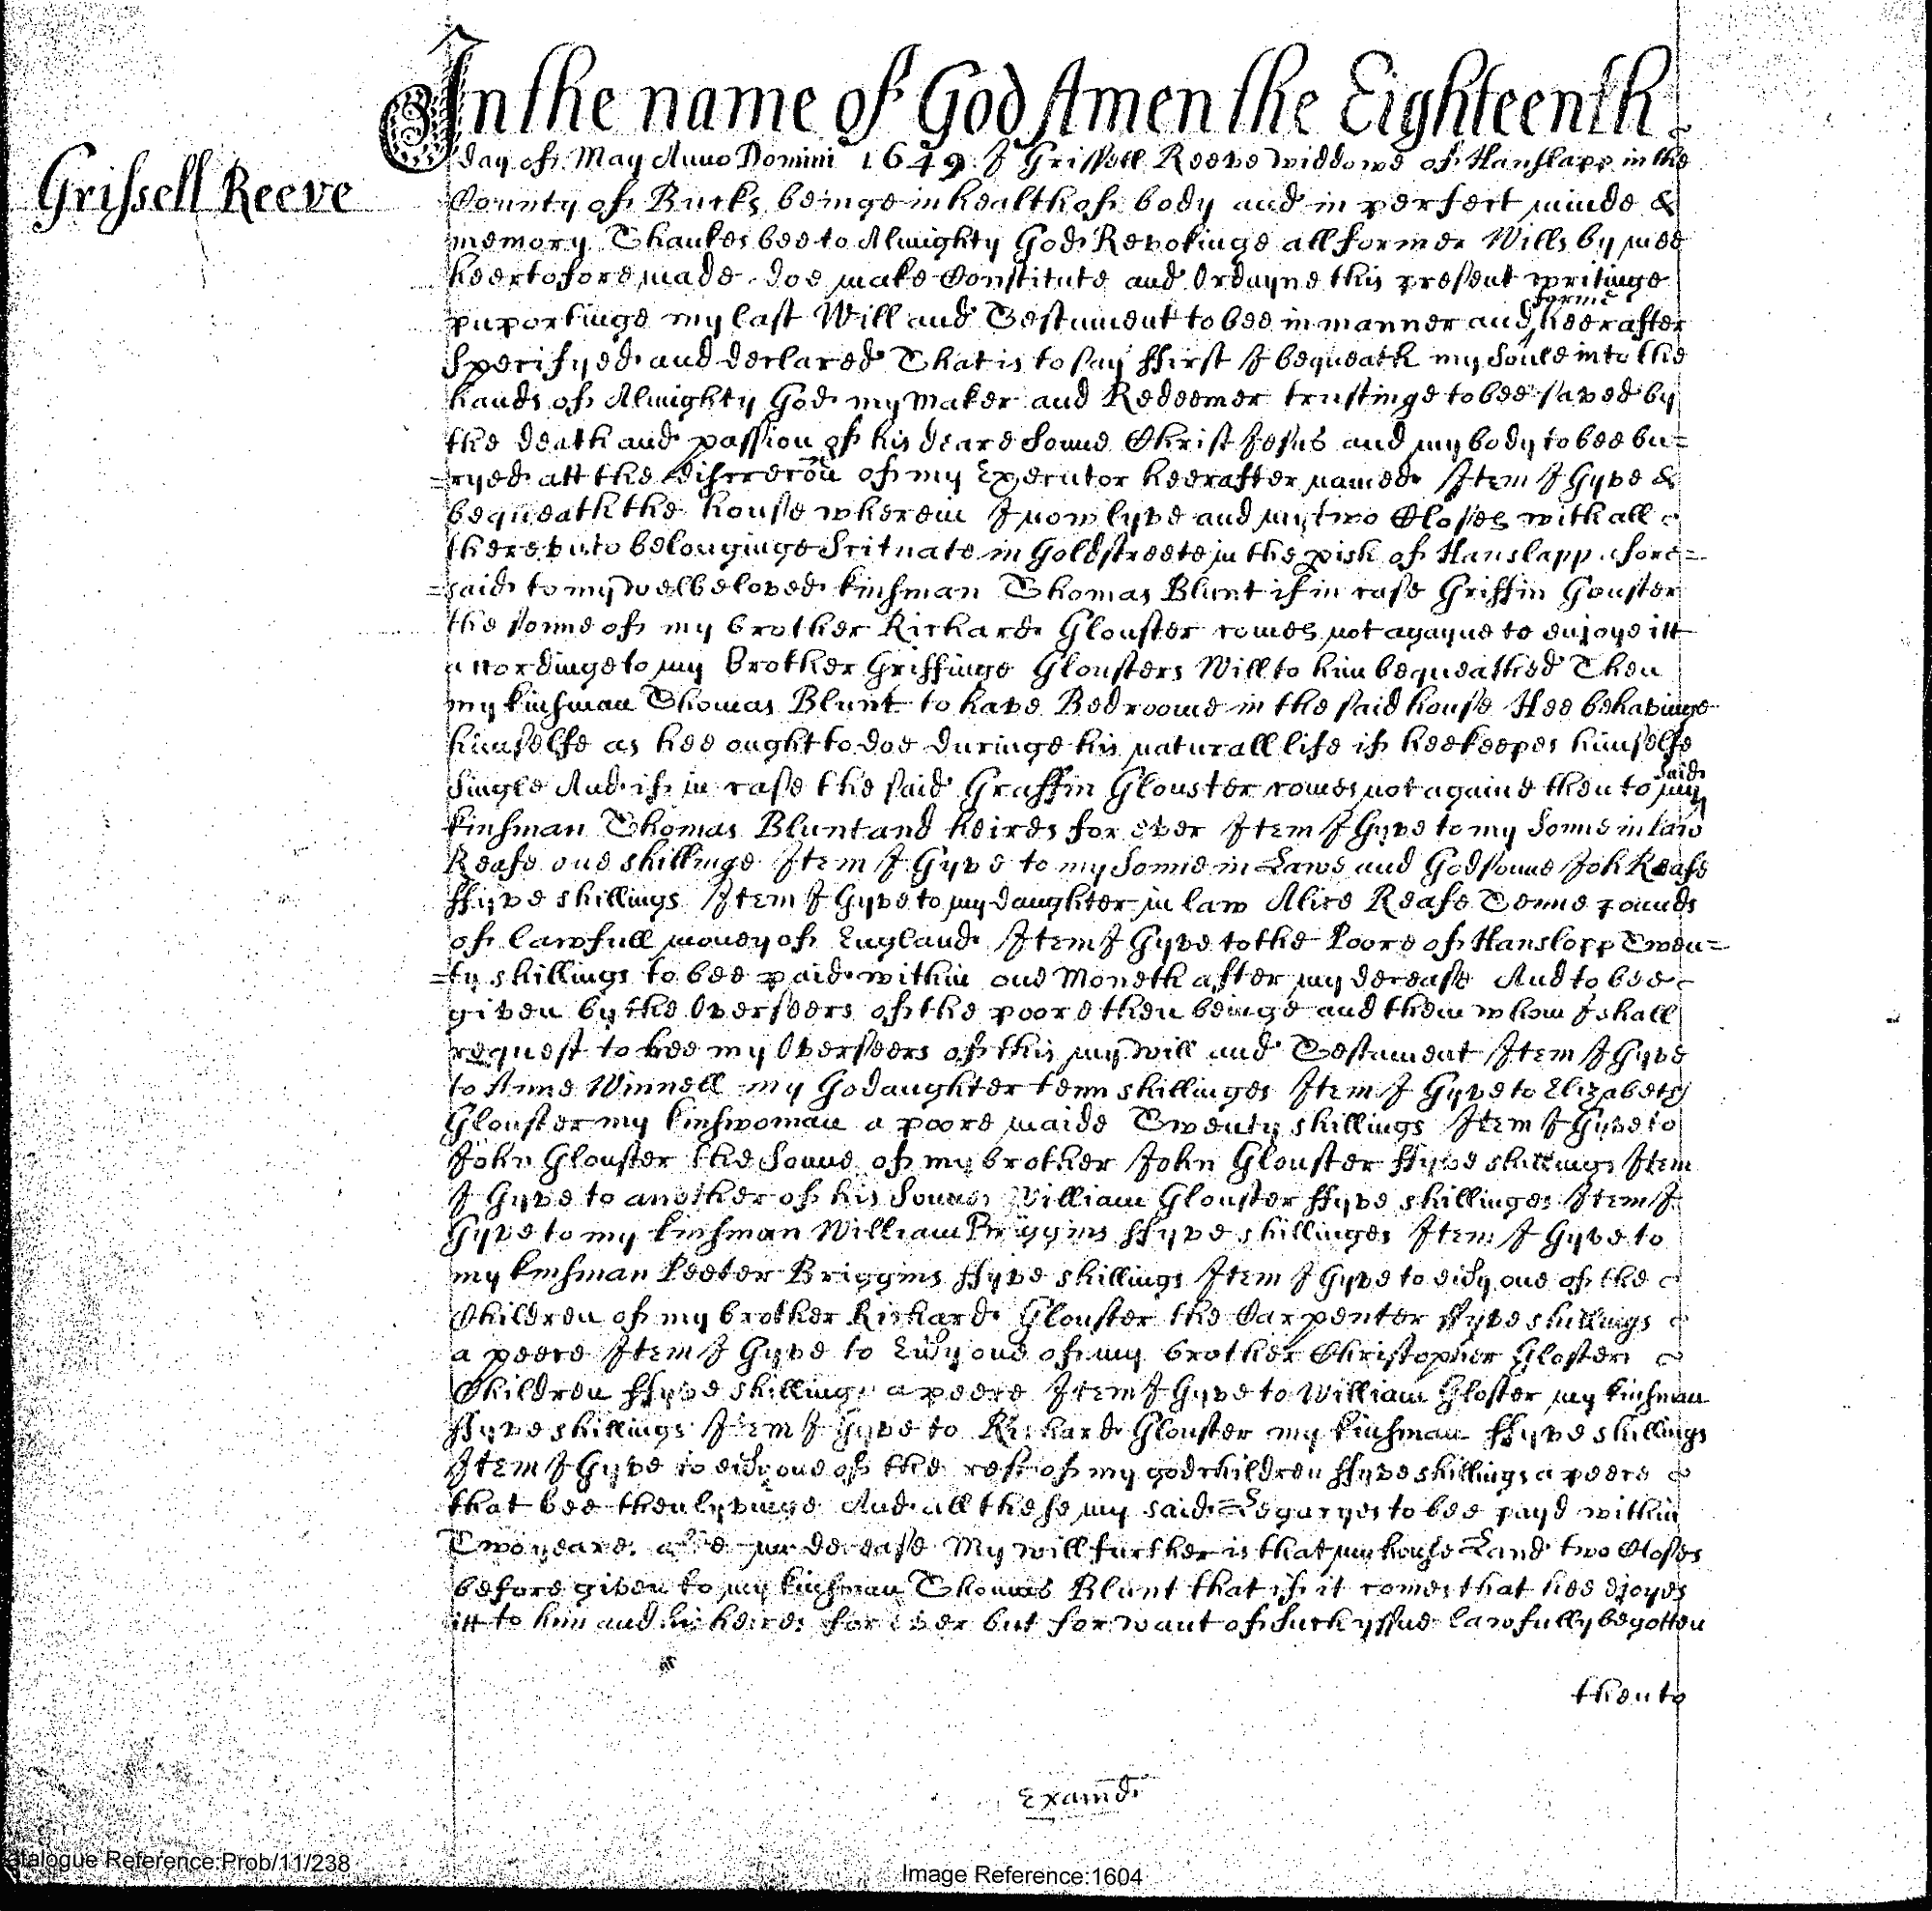 In the name of God Amen the Eighteenth
Grissell Reeve
day of May Anno Domini 1649 I Grissell Reeve widdowe of Hanslapp in the
County of Bucks beinge in health of body and in perfect minde &
memory Thankes bee to Almighty God Revokinge all former Wills by mee
heertofore made doe make Constitute and Ordayne this present writinge
puportinge my last Will and Testament to bee in manner and forme heerafter
specifyed and declared That is to say ffirst I bequeath my Soule into the
hands of Almighty God my Maker and Redeemer trustinge to bee saved by
the death and passion of his deare Sonne Christ Jesus and my body to bee bu=
=ryed att the discrecõn of my Executor heerafter named Item I gyve &
bequeath the house wherein I now lyve and my two Closes with all
therevnto belonginge Scituate in Goldstreete in the pish of Hanslapp afore=
=said to my welbeloved kinsman Thomas Blunt if in case Griffin Gouster
the sonne of my brother Richard Glouster comes not agayne to enjoye itt
accordinge to my Brother Griffinge Glousters Will to him bequeathed Then
my kinsman Thomas Blunt to have Bedroome in the said house Hee behavinge
himselfe as hee ought to doe duringe his naturall life if hee keepes himselfe
single And if in case the said Graffin Glouster comes not againe then to my said
kinsman Thomas Blunt and heires for ever Item I gyve to my Sonne in law
Reafe one shillinge Item I Gyve to my Sonne in Lawe and Godsonne Joh Reafe
ffyve shillings Item I gyve to my daughter in law Alice Reafe Tenne pounds
of lawfull money of England Item I Gyve to the Poore of Hanslopp Twen=
=ty shillings to bee paid within one Moneth after my decease And to bee
given by the Overseers of the poore then beinge and them whom I shall
request to bee my Overseers of this my will and Testament Item I gyve
to Anne Winnell my Godaughter tenn shillinges Item I Gyve to Elizabeth
Glouster my kinswoman a poore maide Twenty shillings Item I Gyve to
John Glouster the Sonne of my brother John Glouster ffyve shillings Item
I Gyve to another of his Sonnes William Glouster ffyve shillinges Item I
Gyve to my kinsman William Briggins ffyve shillinges Item I Gyve to
my kinsman Peeter Briggins ffyve shillings Item I gyve to evy one of the
Children of my brother Richard Glouster the Carpenter ffyve shillings
a peece Item I Gyve to Evy one of my brother Christopher Gloster
Children ffyve shillings a peece Item I Gyve to William Gloster my kinsman
ffyve shillings Item I Gyve to Richard Glouster my kinsman ffyve shillings
Item I Gyve to evy one of the rest of my godchildren ffyve shillings a peece
that bee then lyvinge And all these my said Legacyes to bee payd within
Two yeares after my decease My will further is that my house Land two Closes
before given to my kinsman Thomas Blunt that if it comes that hee ejoyes
itt to him and his heires for ever but for want of such yssue lawfully begotten
then to
Examd
Catalogue Reference:Prob/11/238
Image Reference:1604